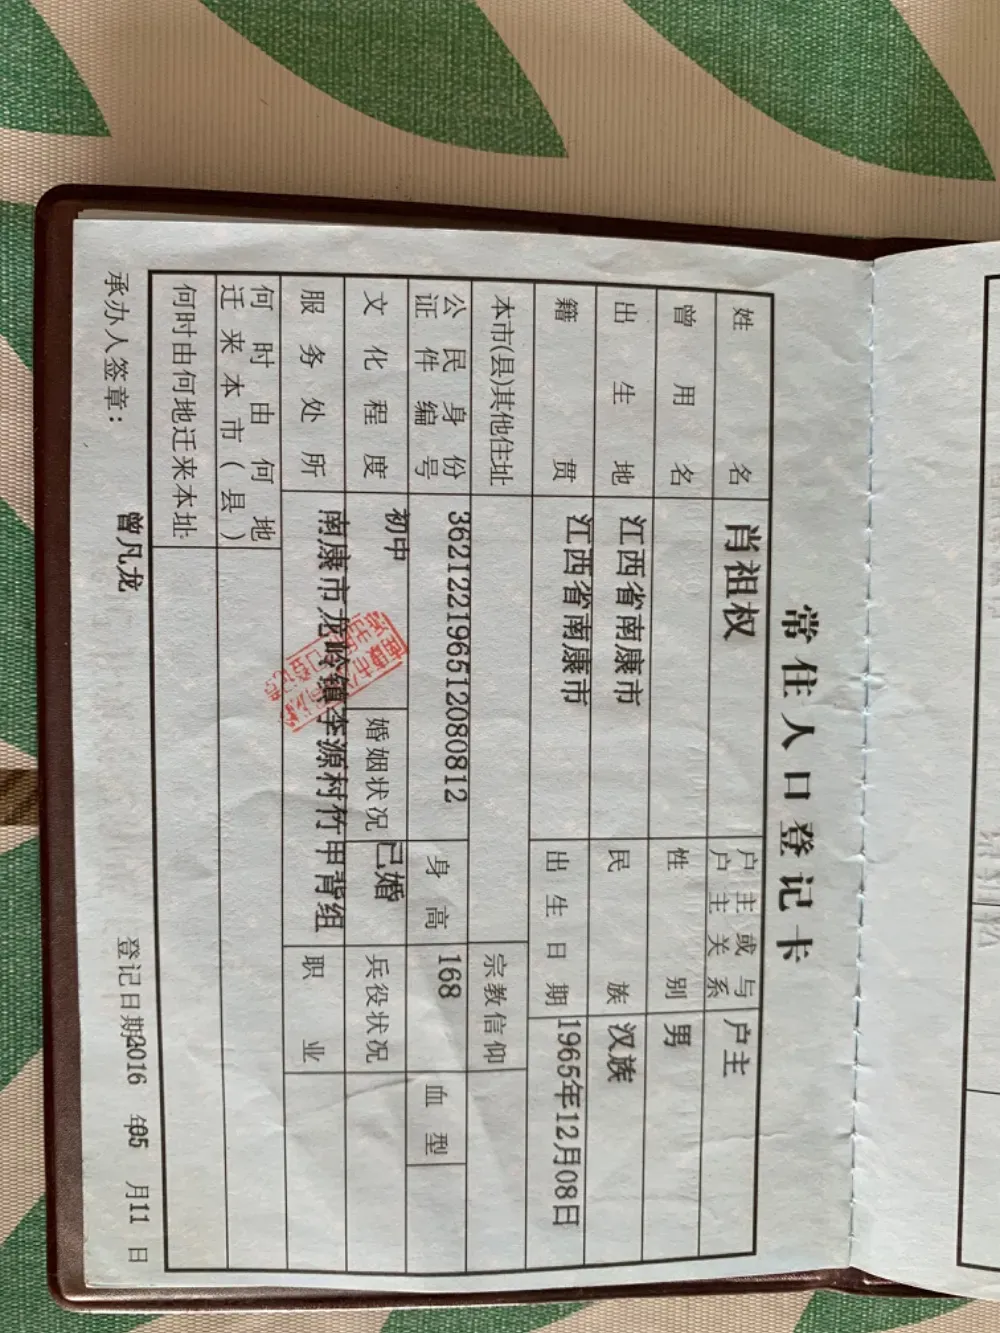 常住人口登记卡
姓名 肖祖权 户主或与户主关系 户主
曾用名 性别 男
出生地 江西省南康市 民族 汉族
籍贯 江西省南康市 出生日期 1965年12月08日
本市(县)其他住址 宗教信仰
公民身份证件编号 362122196512080812 身高 168 血型
文化程度 初中 婚姻状况 已婚 兵役状况
服务处所 南康市龙岭镇李源村竹甲背组 职业
何时由何地迁来本市(县)
何时由何地迁来本址
承办人签章: 曾凡龙 登记日期2016 年05 月11 日